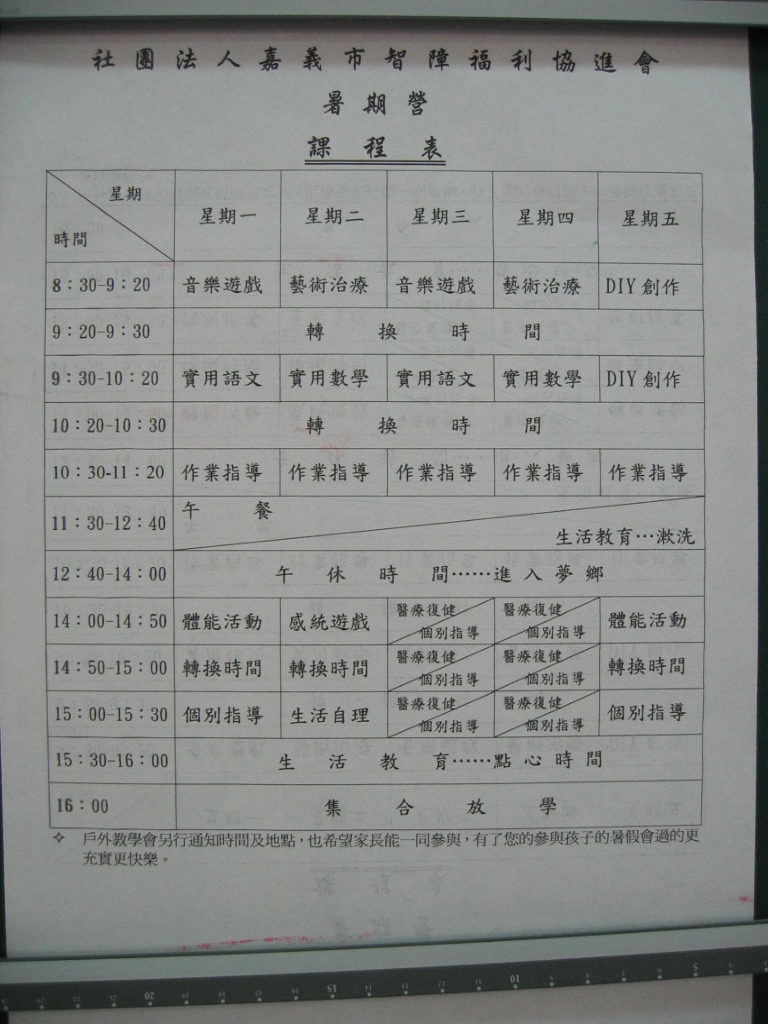 社團法人嘉義市智障福利協進會
暑期營
課程表
星期
時間
星期一 星期二 星期三 星期四 星期五
8：30-9：20 音樂遊戲 藝術治療 音樂遊戲 藝術治療 DIY創作
9：20-9：30 轉換時間
9：30-10：20 實用語文 實用數學 實用語文 實用數學 DIY創作
10：20-10：30 轉換時間
10：30-11：20 作業指導 作業指導 作業指導 作業指導 作業指導
11：30-12：40 午餐 生活教育…漱洗
12：40-14：00 午休時間……進入夢鄉
14：00-14：50 體能活動 感統遊戲 醫療復健 個別指導 醫療復健 個別指導 體能活動
14：50-15：00 轉換時間 轉換時間 醫療復健 個別指導 醫療復健 個別指導 轉換時間
15：00-15：30 個別指導 生活自理 醫療復健 個別指導 醫療復健 個別指導 個別指導
15：30-16：00 生活教育……點心時間
16：00 集合放學
✧ 戶外教學會另行通知時間及地點，也希望家長能一同參與，有了您的參與孩子的暑假會過的更
充實更快樂。
20 15 10 5